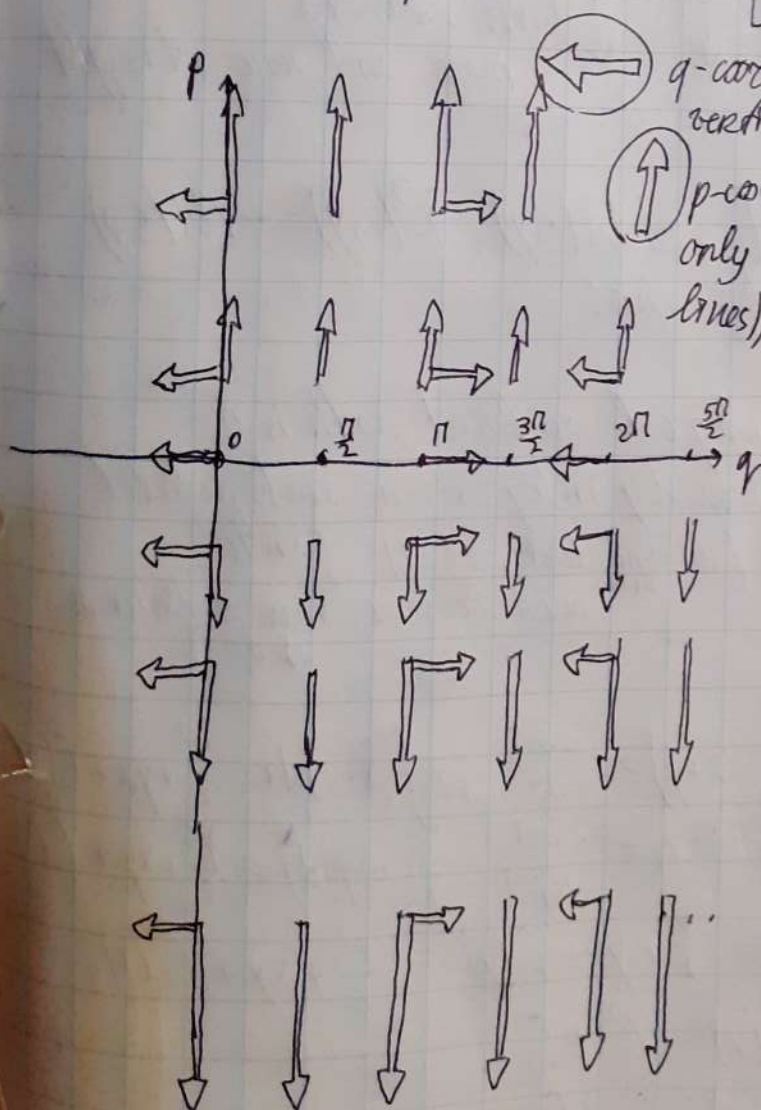 p
q-coor
vert
p-coo
only
lines),
0 π/2 π 3π/2 2π 5π/2 q
..